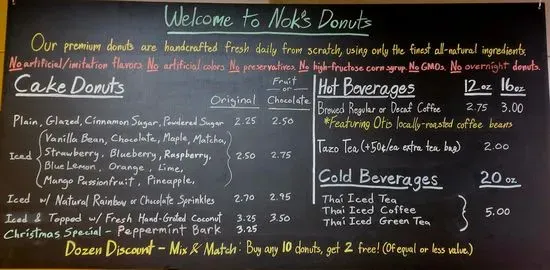 Welcome to Nok's Donuts
Our premium donuts are handcrafted fresh daily from scratch, using only the finest all-natural ingredients.
No artificial/imitation flavors. No artificial colors. No preservatives. No high-fructose corn syrup. No GMOs. No overnight donuts.
Cake Donuts
Original
Fruit
or
Chocolate
Plain, Glazed, Cinnamon Sugar, Powdered Sugar 2.25 2.50
Iced { Vanilla Bean, Chocolate, Maple, Matcha,
Strawberry, Blueberry, Raspberry,
Blue Lemon, Orange, Lime,
Mango Passionfruit, Pineapple, } 2.50 2.75
Iced w/ Natural Rainbow or Chocolate Sprinkles 2.70 2.95
Iced & Topped w/ Fresh Hand-Grated Coconut 3.25 3.50
Christmas Special - Peppermint Bark 3.25
Hot Beverages 12 oz 16 oz
Brewed Regular or Decaf Coffee 2.75 3.00
*Featuring Otis locally-roasted coffee beans
Tazo Tea (+50¢/ea extra tea bag) 2.00
Cold Beverages 20 oz
Thai Iced Tea
Thai Iced Coffee
Thai Iced Green Tea } 5.00
Dozen Discount - Mix & Match: Buy any 10 donuts, get 2 free! (Of equal or less value.)